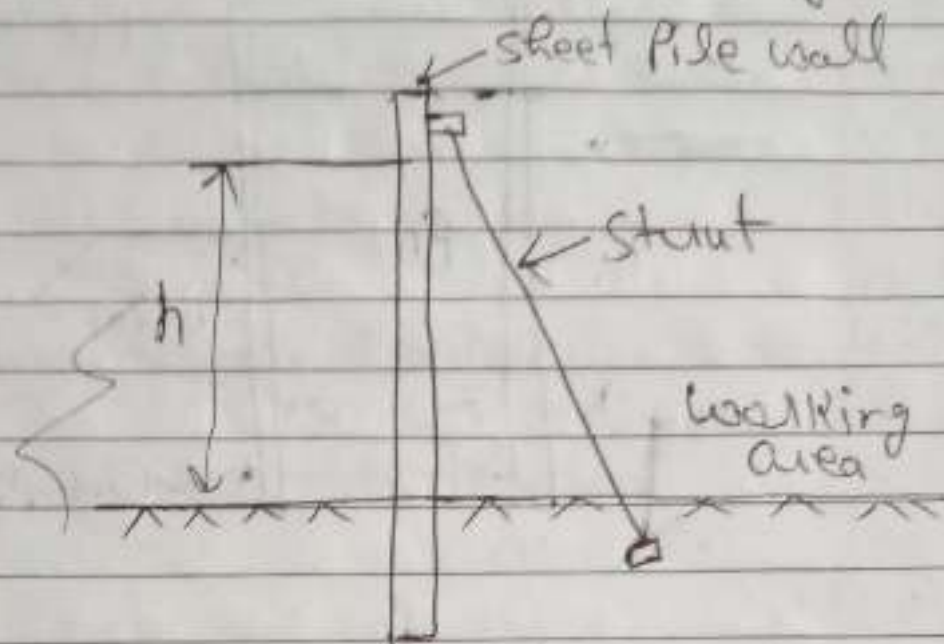 sheet Pile wall
strut
h
walking
area